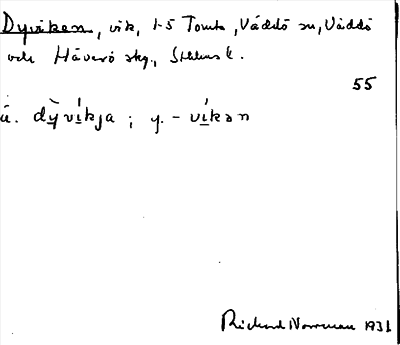 Dyviken, vik, 1-5 Tomta, Väddö sn, Väddö
och Häverö skg., Sthlms l.
55
ä. dỳvíkja ; y. - víkən
Richard Norrman 1931